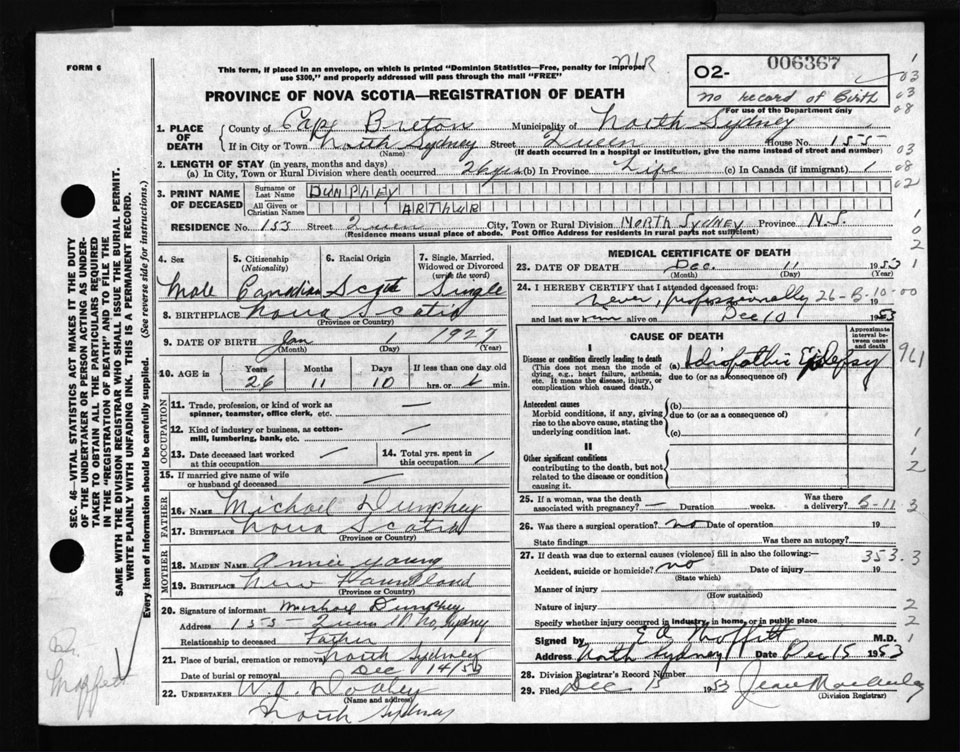 FORM 6
This form, if placed in an envelope, on which is printed "Dominion Statistics—Free, penalty for improper
use $300," and properly addressed will pass through the mail "FREE"
N/R
02- 006367
no record of Birth
For use of the Department only
PROVINCE OF NOVA SCOTIA—REGISTRATION OF DEATH
1. PLACE OF DEATH
County of Cape Breton Municipality of North Sydney
If in City or Town North Sydney Street Queen House No. 155
(Name) (If death occurred in a hospital or institution, give the name instead of street and number)
2. LENGTH OF STAY (in years, months and days)
(a) In City, Town or Rural Division where death occurred 26 yrs (b) In Province Life (c) In Canada (if immigrant)
3. PRINT NAME OF DECEASED
Surname or Last Name DUNPHEY
All Given or Christian Names ARTHUR
RESIDENCE No. 153 Street Queen City, Town or Rural Division NORTH SYDNEY Province N.S.
(Residence means usual place of abode. Post Office Address for residents in rural parts not sufficient)
4. Sex
Male
5. Citizenship
(Nationality)
Canadian
6. Racial Origin
Scotch
7. Single, Married, Widowed or Divorced
(write the word)
Single
8. BIRTHPLACE Nova Scotia
(Province or Country)
9. DATE OF BIRTH Jan 1 1927
(Month) (Day) (Year)
10. AGE in
Years Months Days If less than one day old
26 11 10 hrs. or min.
OCCUPATION
11. Trade, profession, or kind of work as
spinner, teamster, office clerk, etc. —
12. Kind of industry or business, as cotton-
mill, lumbering, bank, etc. —
13. Date deceased last worked
at this occupation
14. Total yrs. spent in
this occupation
15. If married give name of wife
or husband of deceased
FATHER
16. Name Michael Dunphey
17. Birthplace Nova Scotia
(Province or Country)
MOTHER
18. MAIDEN NAME Annie Young
19. BIRTHPLACE New Foundland
(Province or Country)
20. Signature of informant Michael Dunphey
Address 155 - Queen St No. Sydney
Relationship to deceased Father
21. Place of burial, cremation or removal North Sydney
Date of burial or removal Dec 14/53
22. UNDERTAKER W.J. Dooley
(Name and address)
North Sydney
MEDICAL CERTIFICATE OF DEATH
23. DATE OF DEATH Dec. 11 1953
(Month) (Day) (Year)
24. I HEREBY CERTIFY that I attended deceased from:
never, professionally 26-B-10-00
and last saw him alive on Dec 10 1953
CAUSE OF DEATH
Approximate interval between cause and death
I
Disease or condition directly leading to death
(This does not mean the mode of dying, e.g., heart failure, asthenia, etc. It means the disease, injury, or complication which caused death.)
(a) Idiopathic Epilepsy
due to (or as a consequence of)
Antecedent causes
Morbid conditions, if any, giving rise to the above cause, stating the underlying condition last.
(b)
due to (or as a consequence of)
(c)
II
Other significant conditions
contributing to the death, but not related to the disease or condition causing it.
25. If a woman, was the death
associated with pregnancy? — Duration weeks. Was there a delivery? B-11
26. Was there surgical operation? no Date of operation 19
State findings Was there an autopsy?
27. If death was due to external causes (violence) fill in also the following:—
353.3
Accident, suicide or homicide? no Date of injury 19
(State which)
Manner of injury
(How sustained)
Nature of injury
Specify whether injury occurred in industry, in home, or in public place
Signed by E A Moffitt M.D.
Address North Sydney Date Dec 15 1953
28. Division Registrar's Record Number
29. Filed Dec 15 1953
(Division Registrar)
SEC. 46 VITAL STATISTICS ACT MAKES IT THE DUTY
OF THE UNDERTAKER OR PERSON ACTING AS UNDER-
TAKER TO OBTAIN ALL THE PARTICULARS REQUIRED
IN THE "REGISTRATION OF DEATH" AND TO FILE THE
SAME WITH THE DIVISION REGISTRAR WHO SHALL ISSUE THE BURIAL PERMIT.
WRITE PLAINLY WITH UNFADING INK. THIS IS A PERMANENT RECORD.
Every item of information should be carefully supplied. (See reverse side for instructions.)